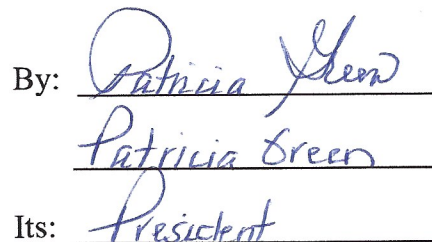 By: Patricia Green
Patricia Green
Its: President